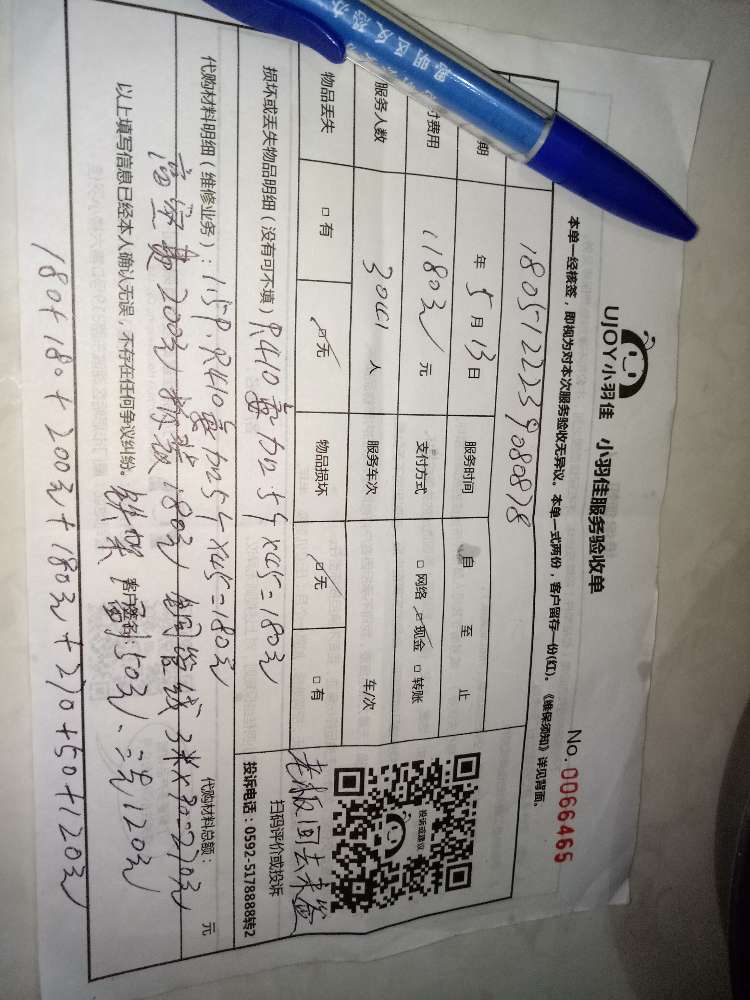 思明区反恐办
UJOY小羽佳 小羽佳服务验收单
No. 0066465
本单一经核签，即视为对本次服务验收无异议。本单一式两份，客户留存一份(红)。《维保须知》详见背面。
1805122239080878
期 年5月13日 服务时间 自 至 止
付费用 1180元 元 支付方式 □网络 ☑现金 □转账
服务人数 人 服务车次 车/次
物品丢失 □有 ☑无 物品损坏 ☑无 □有
投诉或建议
老板回去未签
扫码评价或投诉
投诉电话：0592-5178888转2
损坏或丢失物品明细（没有可不填）R410 加 ×45=180元
代购材料明细（维修业务）：1.5P.R410 加 ×45=180元
代购材料总额： 元
200元 拆装180元 铜管线3米×90=270元
以上填写信息已经本人确认无误，不存在任何争议纠纷。 客户签名：
铁架一副50元、120元
180+180+200元+180元+270+50+120元